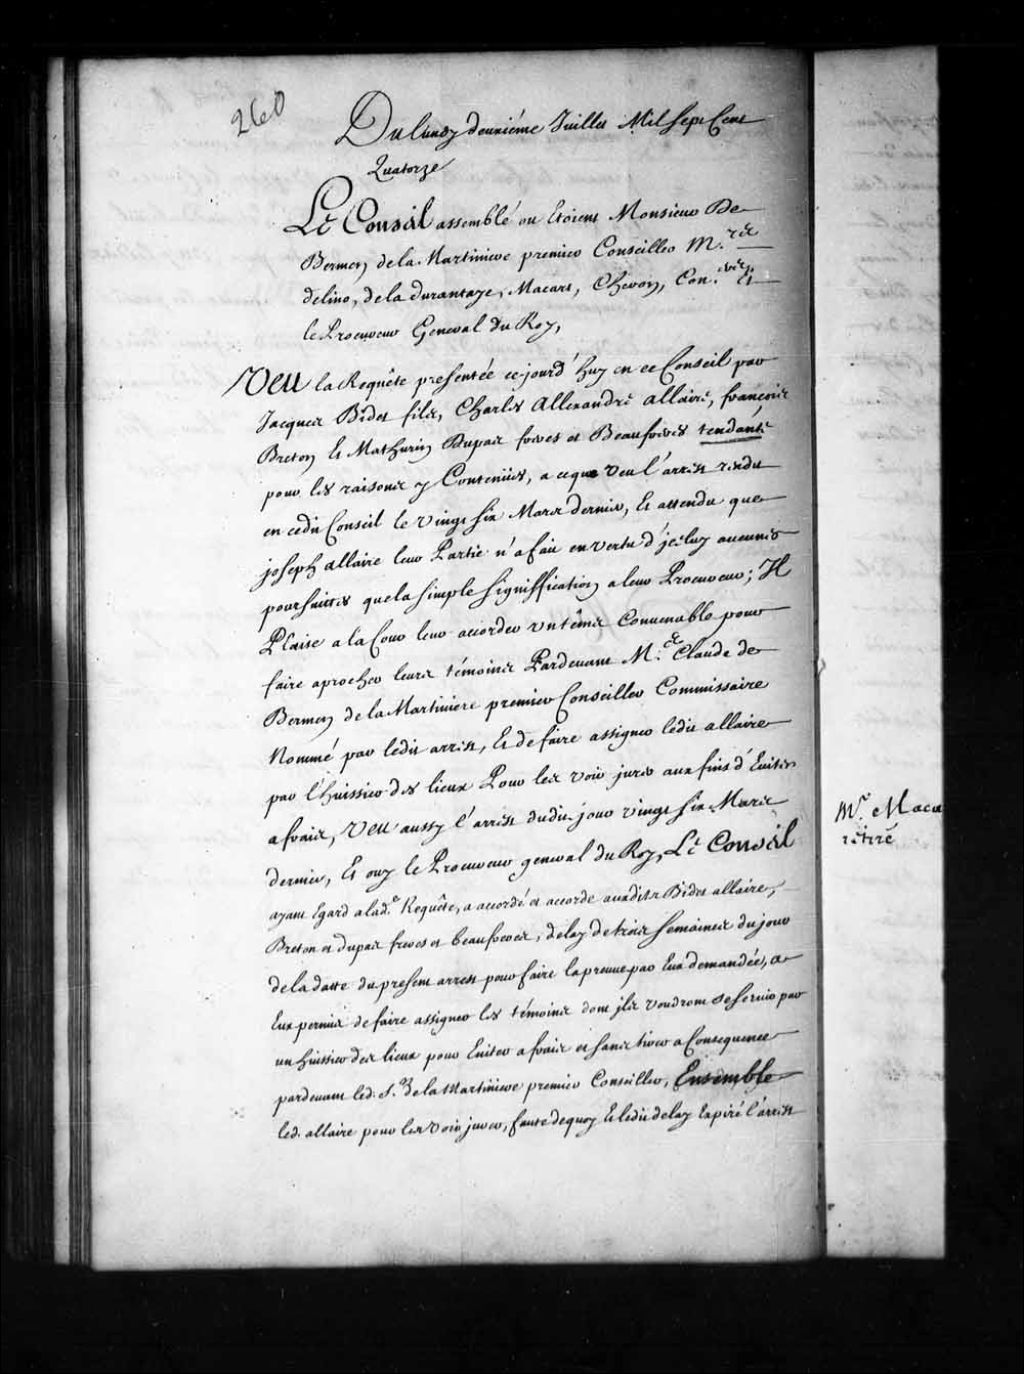 260
Du lundy deuxiéme Juillet Mil Sept Cent
Quatorze
Le Conseil assemblé ou Etoient Monsieur De
Bermen de la Martiniere premier Conseiller M.rs
delino, de la durantaye, Macart, Cheron, Con.ers Et
le Procureur General du Roy,
Veu la Requête presentée cejourd'huy en ce Conseil par
Jacques Bidet fils, Charles Allexandre allaire, francois
Breton Et Mathurin Dupas freres et Beaufreres tendante
pour les raisons y Contenües, a ceque Veu l'arrest rendu
en cedit Conseil le Vingt six Mars dernier, Et attendu que
joseph allaire leur Partie n'a fait en vertu d'jceluy aucunes
poursuittes que la simple signiffication a leur Procureur; Il
Plaise a la Cour leur accorder un têms Convenable pour
faire aprocher leurs témoins Pardevant M.e Claude de
Bermen de la Martiniere premier Conseiller Commissaire
Nommé par ledit arrest, Et de faire assigner ledit allaire
par l'huissier des lieux Pour les voir jurer aux fins d'Eviter
a frais, Veu aussy l'arrest dudit jour vingt six Mars
dernier, Et ouy le Procureur general du Roy, Le Conseil
ayant Egard a lad.e Requête, a accordé et accorde auxdits Bidet allaire,
Breton et dupas freres et beaufreres, delay de trois semaines du jour
de la datte du present arrest pour faire la preuve par Eux demandée, a
Eux permis de faire assigner les témoins dont jls voudront se servir par
un huissier des lieux pour Eviter a frais et sans tirer a Consequence
pardevant led. S.r de la Martiniere premier Conseiller, Ensemble
led. allaire pour les voir jurer, faute dequoy Et ledit delay Expiré l'arrest
M.r Maca
retiré